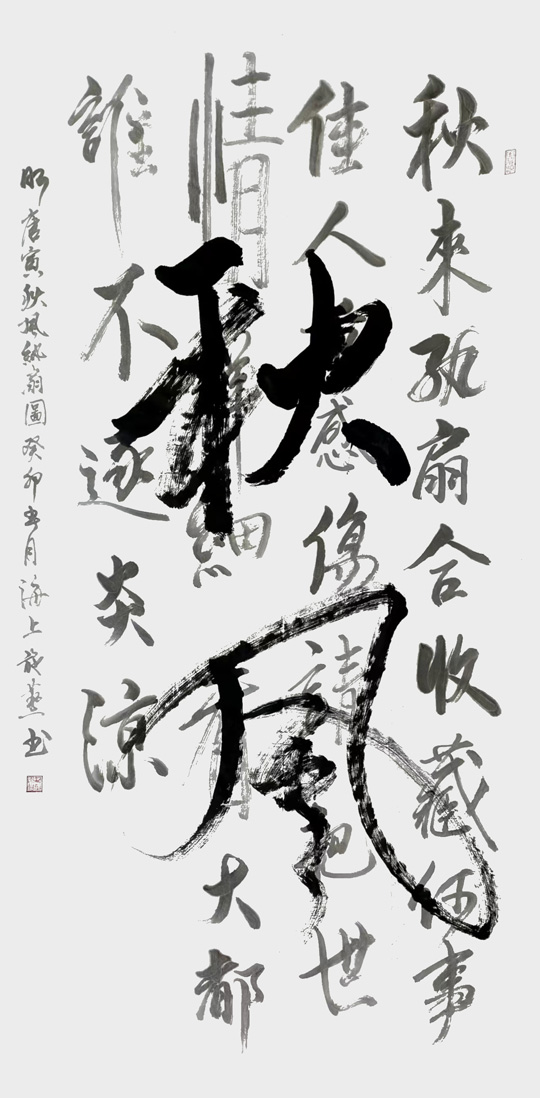 秋風
秋來紈扇合收藏何事
佳人重感傷請把世
情詳細看大都
誰不逐炎涼
明唐寅秋風紈扇圖 癸卯五月海上書